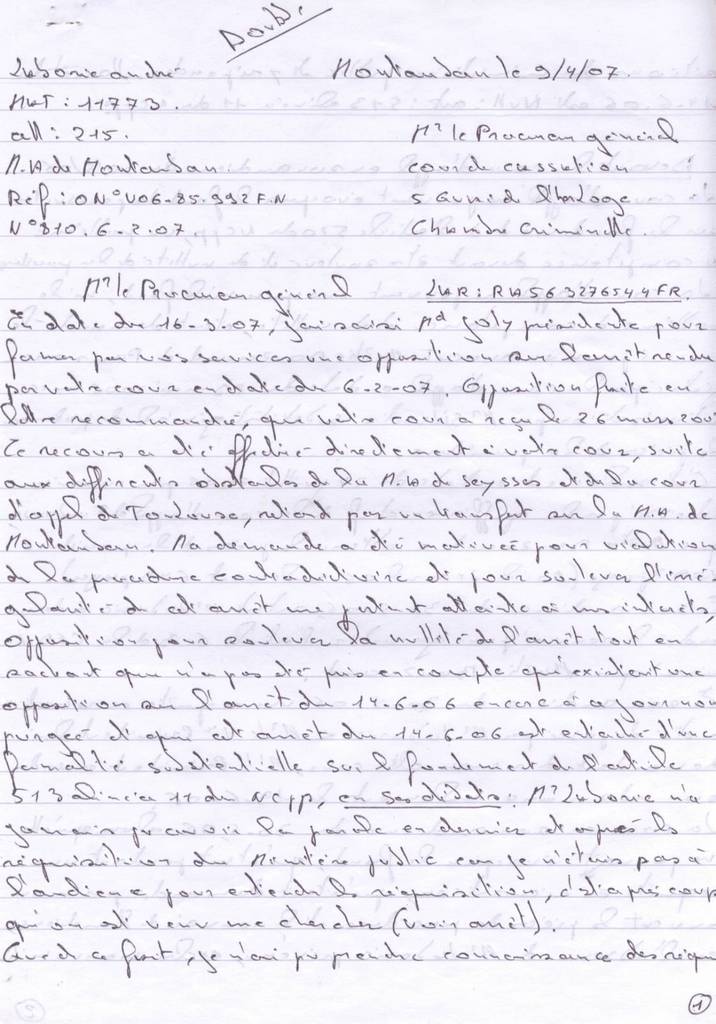 Double
Laborie andré Montauban le 9/4/07.
N° : 11773.
cell : 215. Mr le Procureur général
M.A de Montauban. cour de cassation
Réf : O N° V06-85.992 F.N 5 quai de l'horloge
N° 810. 6-2.07. Chambre Criminelle.
Mr le Procureur général LAR : RA 56 327 654 4 FR.
En date du 16-3.07, j'ai saisi Md Joly présidente pour
former par vos services une opposition sur l'arrêt rendu
par votre cour en date du 6-2-07. Opposition faite en
lettre recommandée, que votre cour a reçu le 26 mars 2007
Ce recours a été effectué directement à votre cour, suite
aux différents obstacles de la M.A de Seysses et de la cour
d'appel de Toulouse, retard par un transfert sur la M.A. de
Montauban. Ma demande a été motivée pour violation
de la procédure contradictoire et pour soulever l'irré
gularité de cet arrêt me portant atteinte à mes intérêts,
opposition pour soulever la nullité de l'arrêt tout en
sachant que n'a pas été pris en compte qu'existent une
opposition sur l'arrêt du 14-6-06 encore à ce jour non
purgée et que cet arrêt du 14-6-06 est entaché d'une
formalité substentielle sur le fondement de l'article
513 alinéa 11 du NCPP, en ses débats : Mr Laborie n'a
jamais pu avoir la parole en dernier et après les
réquisitions du Ministère public car je n'étais pas à
l'audience pour entendre les réquisition, c'est après coup
qu'on est venu me chercher (voir arrêt).
Que de ce fait, je n'ai pu prendre connaissance des réqui
1